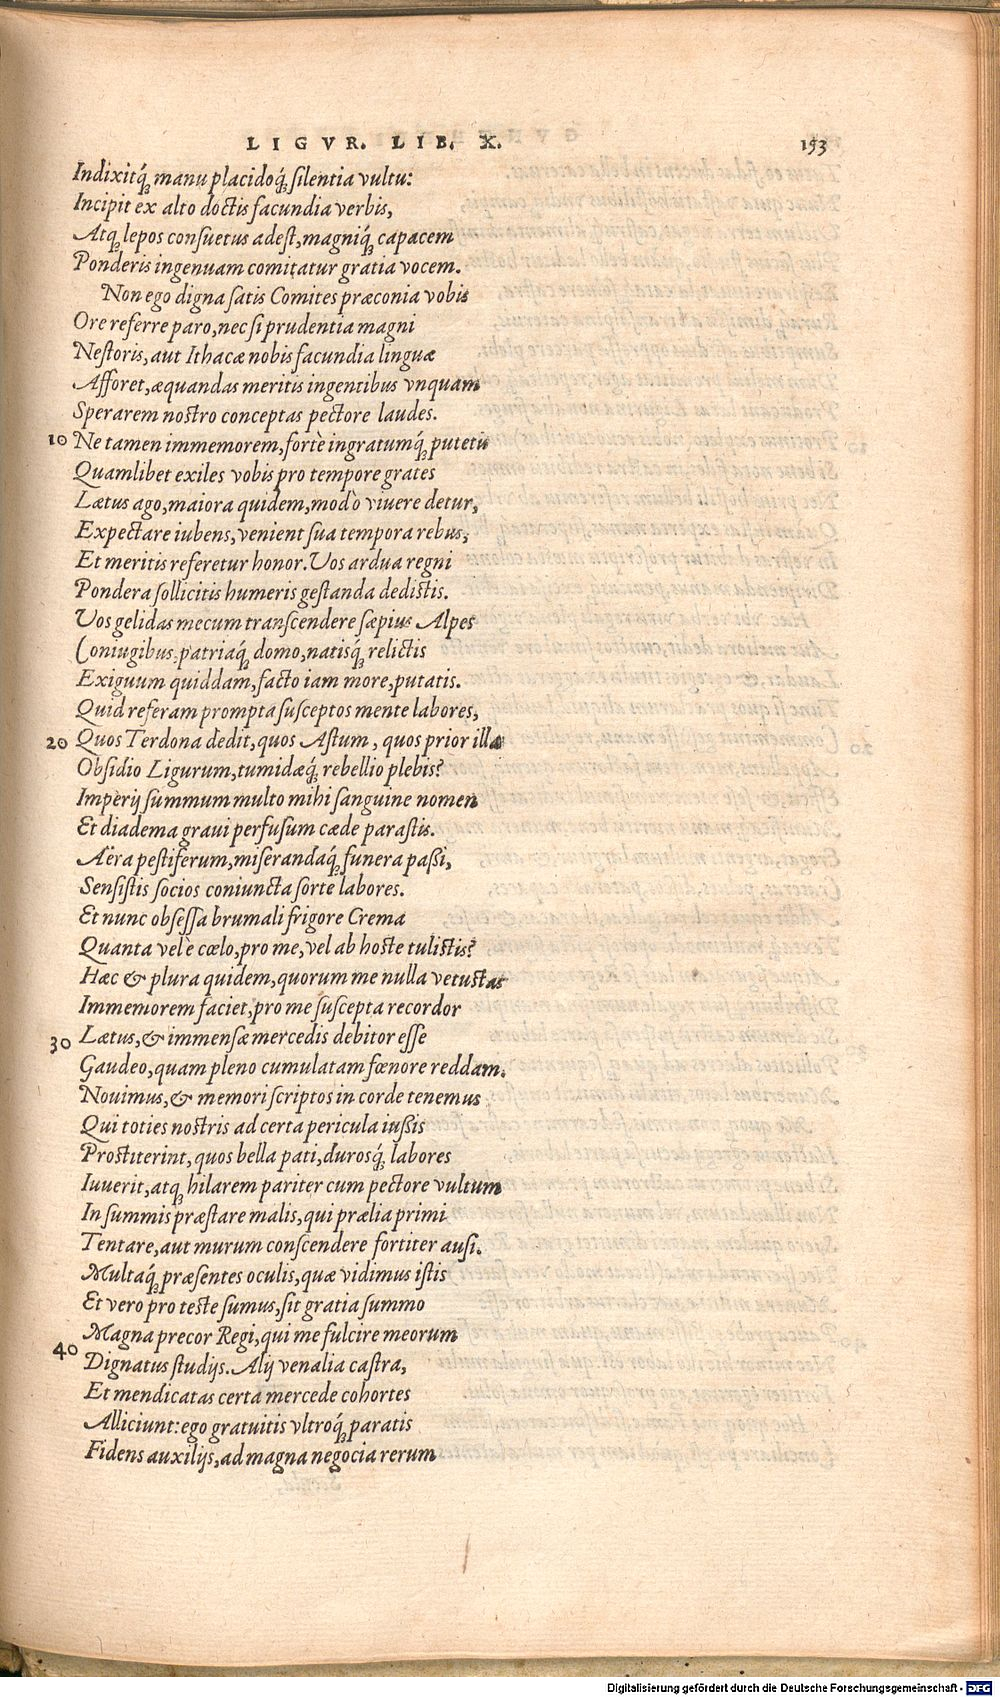 LIGVR. LIB. X. 153
Indixitq́ manu placidoq́ silentia vultu:
Incipit ex alto doctis facundia verbis,
Atq lepos consuetus adest, magniq́ capacem
Ponderis ingenuam comitatur gratia vocem.
Non ego digna satis Comites præconia vobis
Ore referre paro, nec si prudentia magni
Nestoris, aut Ithacæ nobis facundia linguæ
Afforet, æquandas meritis ingentibus vnquam
Sperarem nostro conceptas pectore laudes.
10 Ne tamen immemorem, fortè ingratumq́ putetis
Quamlibet exiles vobis pro tempore grates
Lætus ago, maiora quidem, modò viuere detur,
Expectare iubens, venient sua tempora rebus,
Et meritis referetur honor. Vos ardua regni
Pondera sollicitis humeris gestanda dedistis.
Vos gelidas mecum transcendere sæpius Alpes
Coniugibus, patriaq́ domo, natisq́ relictis
Exiguum quiddam, facto iam more, putatis.
Quid referam prompta susceptos mente labores,
20 Quos Terdona dedit, quos Astum, quos prior illa
Obsidio Ligurum, tumidæq́ rebellio plebis?
Imperij summum multo mihi sanguine nomen
Et diadema graui perfusum cæde parastis.
Aëra pestiferum, miserandaq́ funera paßi,
Sensistis socios coniuncta sorte labores.
Et nunc obsessa brumali frigore Crema
Quanta vel è cœlo, pro me, vel ab hoste tulistis?
Hæc & plura quidem, quorum me nulla vetustas
Immemorem faciet, pro me suscepta recordor
30 Lætus, & immensæ mercedis debitor esse
Gaudeo, quam pleno cumulatam fœnore reddam.
Nouimus, & memori scriptos in corde tenemus
Qui toties nostris ad certa pericula iußis
Prostiterint, quos bella pati, durosq́ labores
Iuuerit, atq hilarem pariter cum pectore vultum
In summis præstare malis, qui prælia primi
Tentare, aut murum conscendere fortiter ausi.
Multaq́ præsentes oculis, quæ vidimus istis
Et vero pro teste sumus, sit gratia summo
Magna precor Regi, qui me fulcire meorum
40 Dignatus studijs. Alij venalia castra,
Et mendicatas certa mercede cohortes
Alliciunt: ego gratuitis vltroq́ paratis
Fidens auxilijs, ad magna negocia rerum
Digitalisierung gefördert durch die Deutsche Forschungsgemeinschaft - DFG